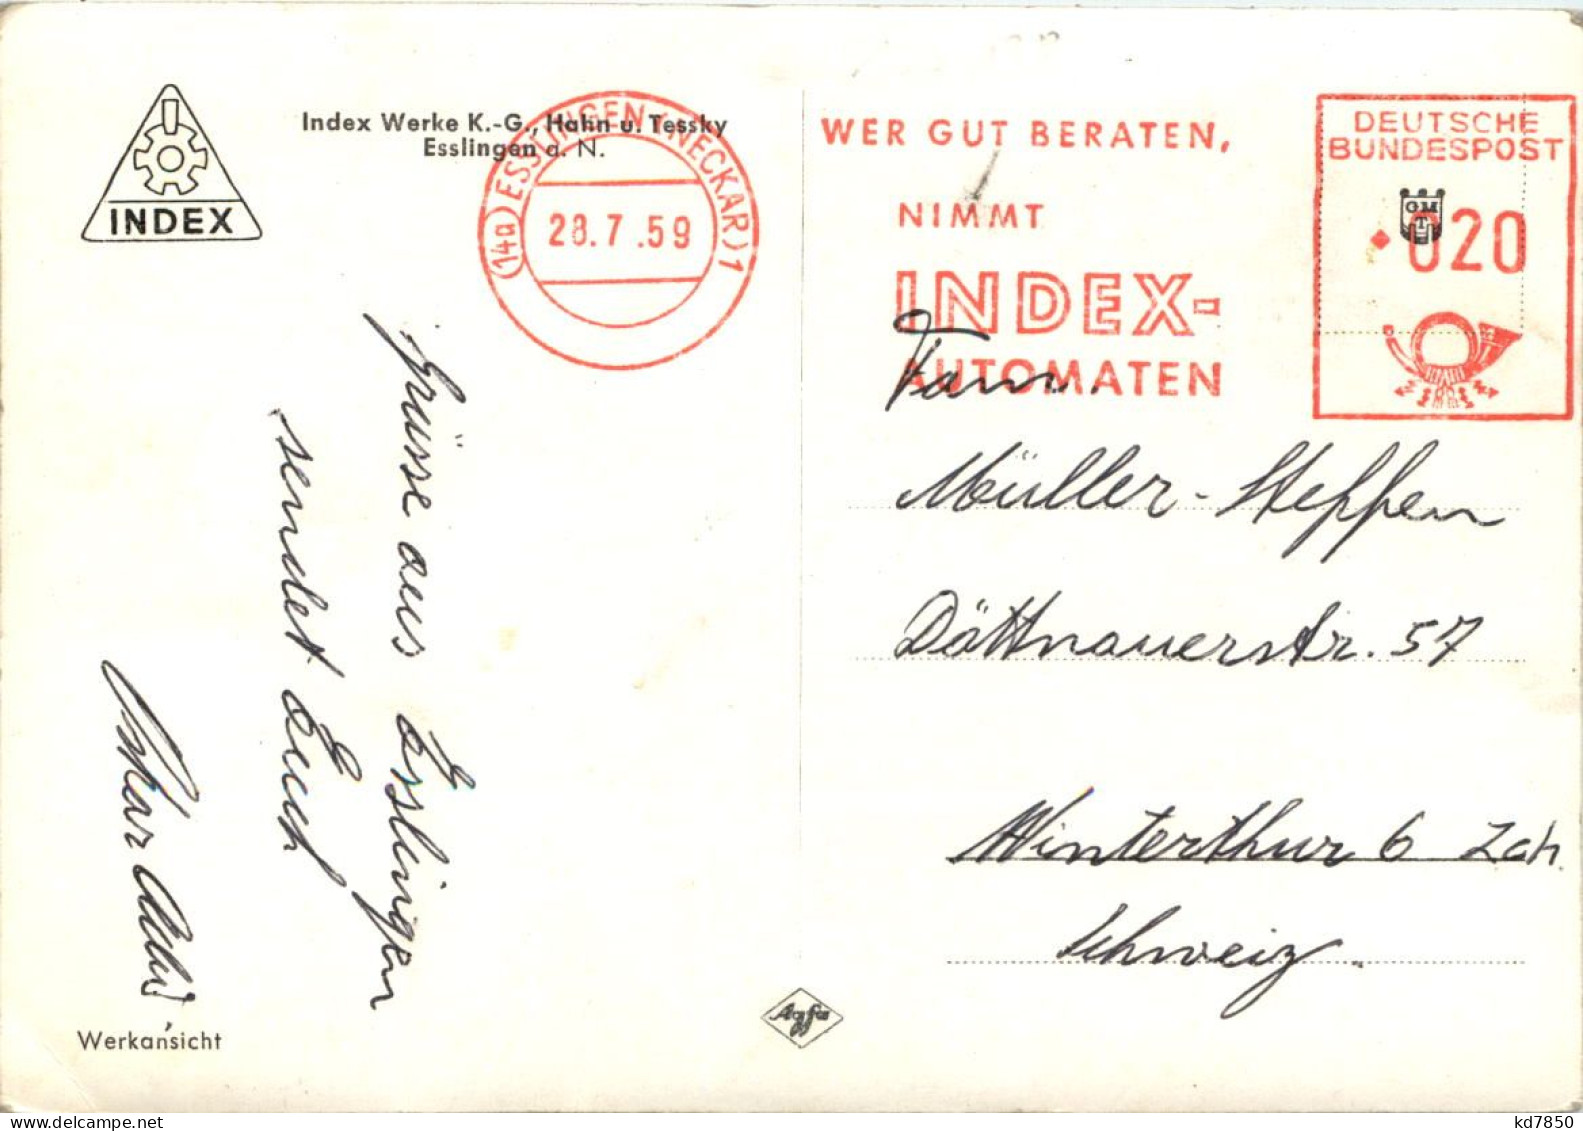 INDEX
Index Werke K.-G., Hahn u. Tessky
Esslingen a. N.
(14a) ESSLINGEN (NECKAR) 1
28.7.59
WER GUT BERATEN,
NIMMT
INDEX-
AUTOMATEN
DEUTSCHE
BUNDESPOST
GM
T
020
Grüsse aus Esslingen
sendet Euch
Oskar
Fam.
Müller-Steffen
Dättnauerstr. 57
Winterthur 6 Zch.
Schweiz.
Werkansicht
Agfa
kd7850